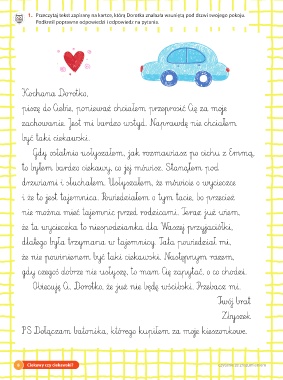 1. Przeczytaj tekst zapisany na kartce, którą Dorotka znalazła wsuniętą pod drzwi swojego pokoju.
Podkreśl poprawne odpowiedzi i odpowiedz na pytania.
Kochana Dorotko,
piszę do Ciebie, ponieważ chciałem przeprosić Cię za moje
zachowanie. Jest mi bardzo wstyd. Naprawdę nie chciałem
być taki ciekawski.
Gdy ostatnio usłyszałem, jak rozmawiasz po cichu z Emmą,
to byłem bardzo ciekawy, co jej mówisz. Stanąłem pod
drzwiami i słuchałem. Usłyszałem, że mówicie o wycieczce
i że to jest tajemnica. Powiedziałem o tym tacie, bo przecież
nie można mieć tajemnic przed rodzicami. Teraz już wiem,
że ta wycieczka to niespodzianka dla Waszej przyjaciółki,
dlatego była trzymana w tajemnicy. Tata powiedział mi,
że nie powinienem być taki ciekawski. Następnym razem,
gdy czegoś dobrze nie usłyszę, to mam Cię zapytać, o co chodzi.
Obiecuję Ci, Dorotko, że już nie będę wścibski. Przebacz mi.
Twój brat
Zbyszek
PS Dołączam batonika, którego kupiłem za moje kieszonkowe.
Ciekawy czy ciekawski?